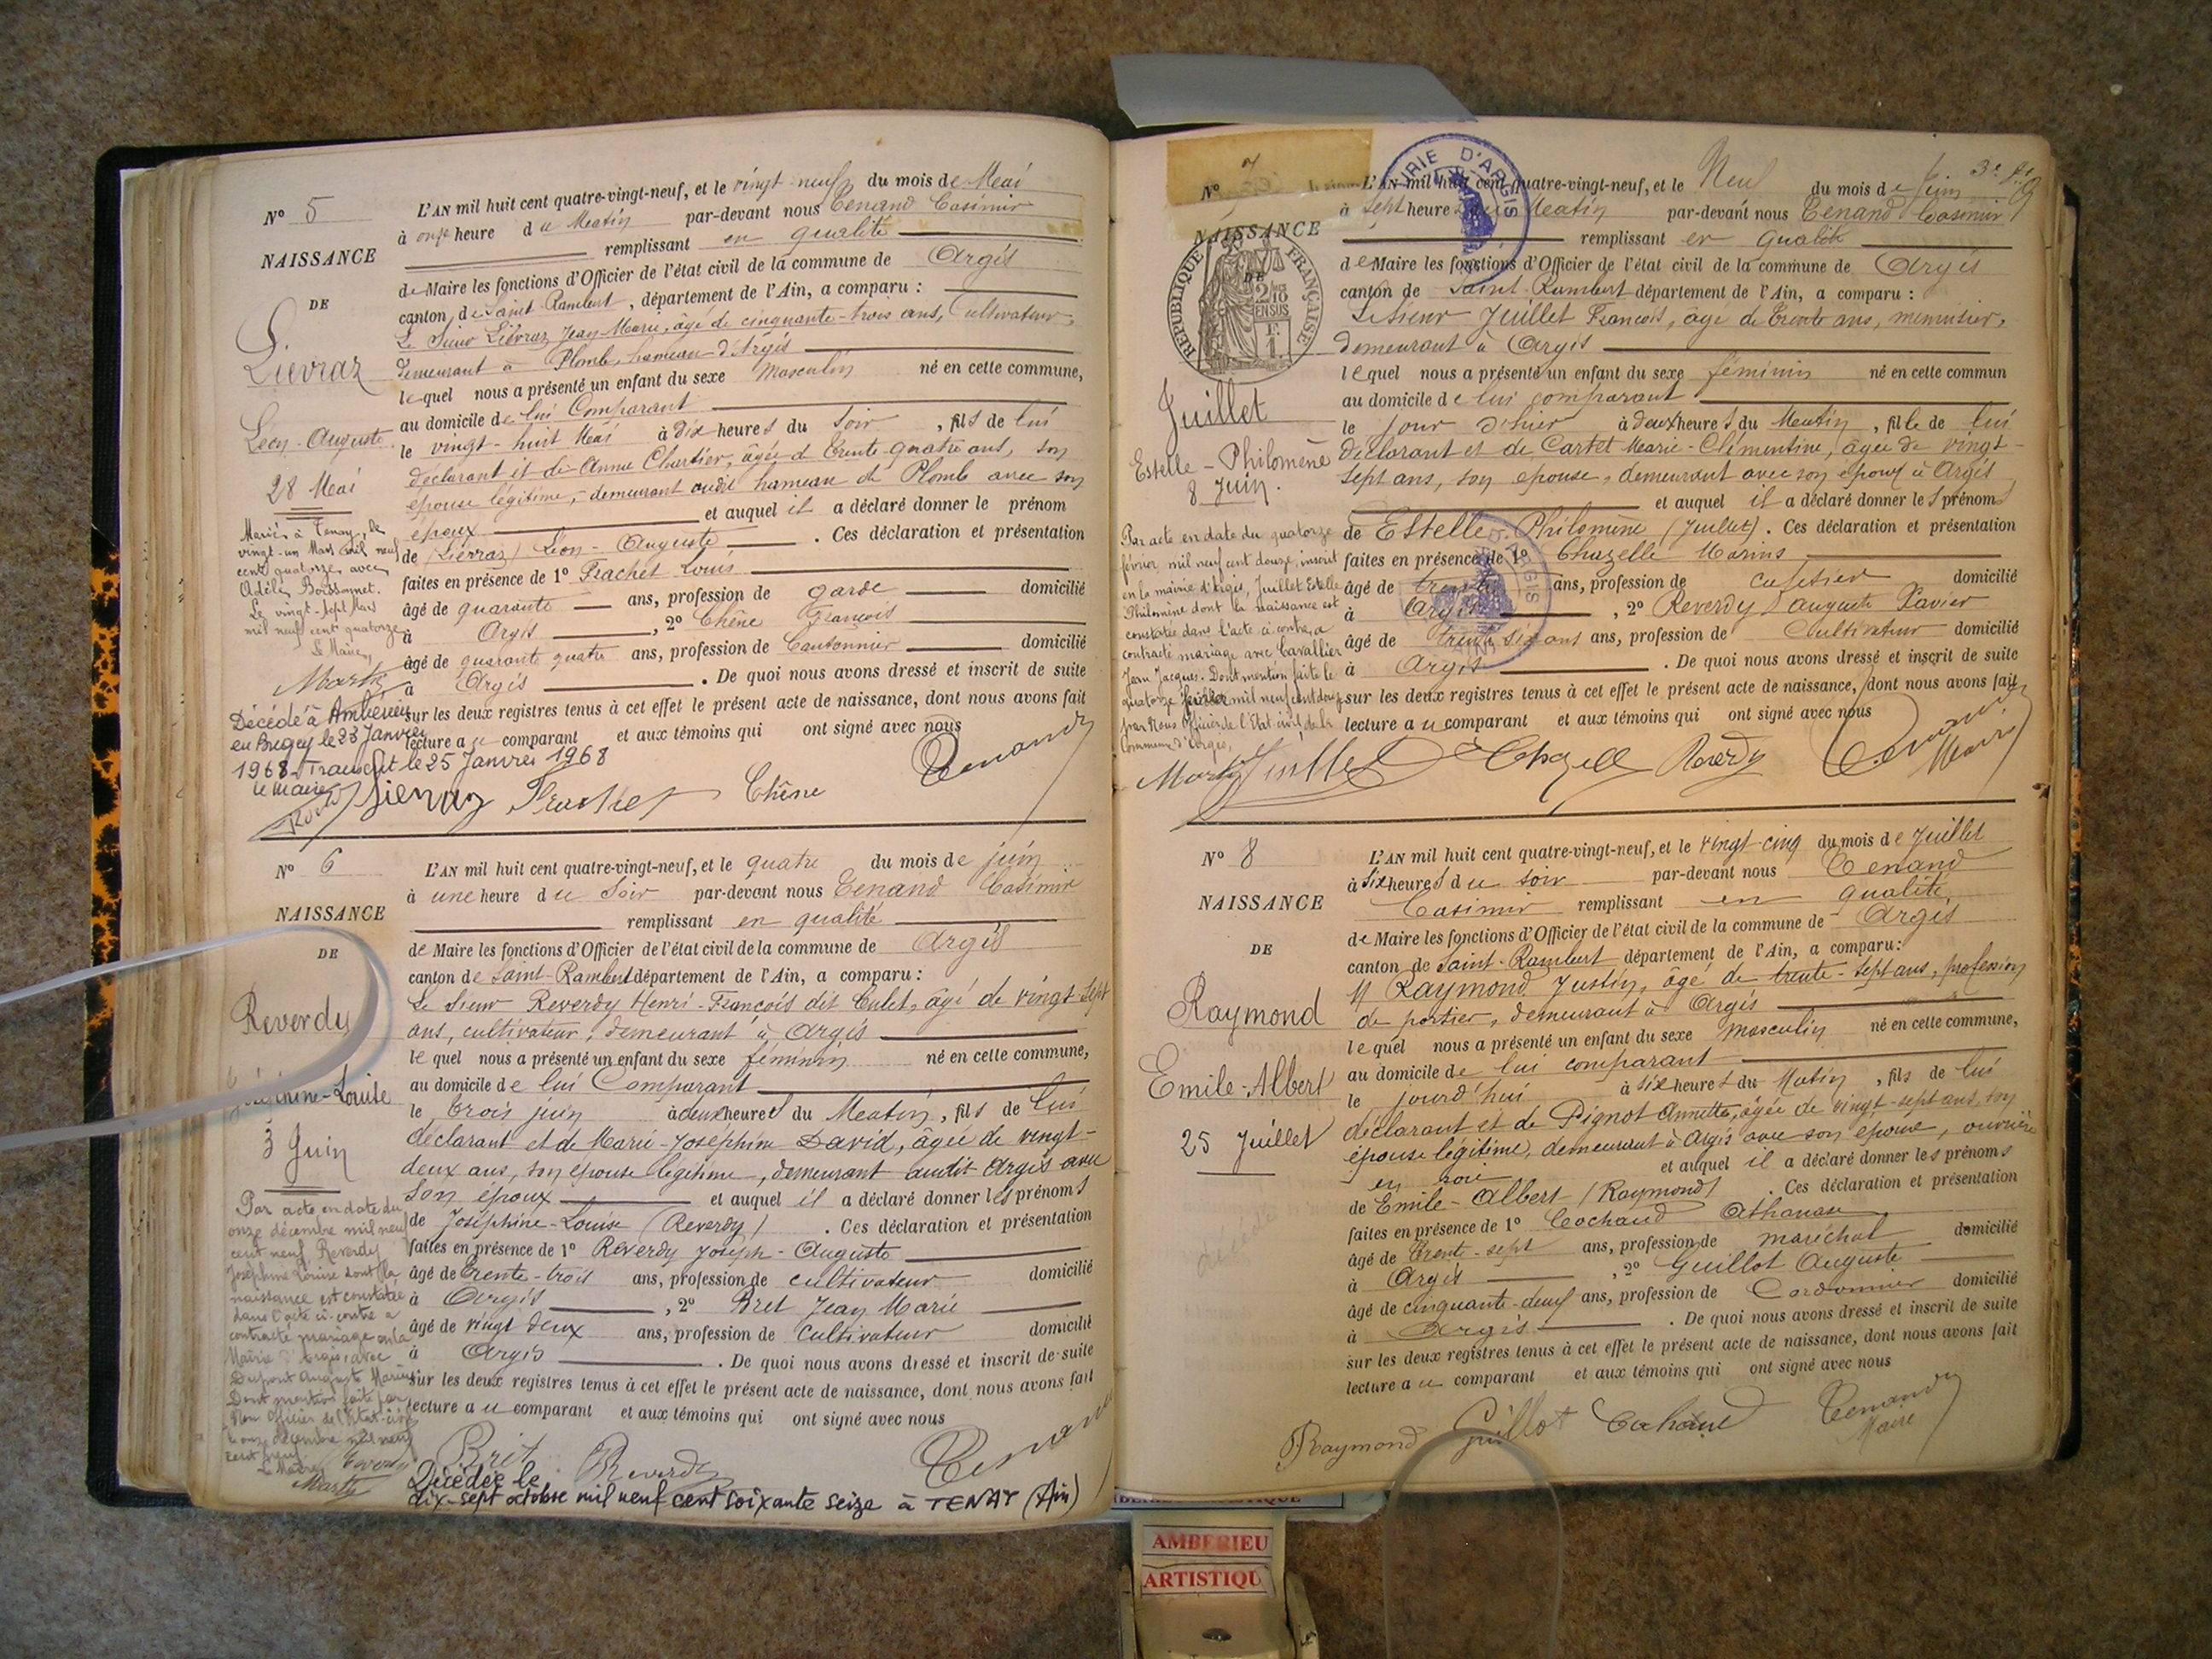 N° 5
NAISSANCE
DE
Lievraz
Léon-Auguste
28 Mai
Marié à Tenay, le
vingt-un Mars mil neuf
cent quatorze avec
Adèle Boissonnet.
Le vingt-sept Mars
mil neuf cent quatorze
Le Maire,
Décédé à Ambérieu
en Bugey le 23 Janvier
1968. Transcrit le 25 Janvier 1968
Le Maire
L'AN mil huit cent quatre-vingt-neuf, et le vingt-neuf du mois de Mai
à onze heure du Matin par-devant nous Tenand Casimir
remplissant en qualité
de Maire les fonctions d'Officier de l'état civil de la commune de Argis
canton de Saint-Rambert, département de l'Ain, a comparu :
Le Sieur Lievraz Jean-Marie, âgé de cinquante-trois ans, Cultivateur,
demeurant à Plomb, hameau d'Argis
lequel nous a présenté un enfant du sexe Masculin né en cette commune,
au domicile de lui Comparant
le vingt-huit Mai à dix heures du Soir, fils de lui
déclarant et de Anne Chartier, âgée d Trente quatre ans, son
épouse légitime, demeurant audit hameau de Plomb avec son
époux et auquel il a déclaré donner le prénom
de (Lievraz) Léon-Auguste. Ces déclaration et présentation
faites en présence de 1° Prachet Louis
âgé de quarante ans, profession de garde domicilié
à Argis, 2° Chêne François
âgé de quarante quatre ans, profession de Cantonnier domicilié
à Argis. De quoi nous avons dressé et inscrit de suite
sur les deux registres tenus à cet effet le présent acte de naissance, dont nous avons fait
lecture au comparant et aux témoins qui ont signé avec nous
Chêne Tenand
N° 6
NAISSANCE
DE
Reverdy
Joséphine-Louise
3 Juin
Par acte en date du
onze décembre mil neuf
cent neuf Reverdy
Joséphine Louise dont la
naissance est constatée
dans l'acte ci-contre a
contracté mariage en la
Mairie d'Argis, avec
Dupont Auguste Marius
Dont mention faite par
Nous Officier de l'Etat-civil
le onze décembre mil neuf
cent neuf
Le Maire
L'AN mil huit cent quatre-vingt-neuf, et le quatre du mois de juin
à une heure du Soir par-devant nous Tenand Casimir
remplissant en qualité
de Maire les fonctions d'Officier de l'état civil de la commune de Argis
canton de Saint-Rambert département de l'Ain, a comparu :
Le Sieur Reverdy Henri-François dit Culet, âgé de vingt-sept
ans, cultivateur, demeurant à Argis
lequel nous a présenté un enfant du sexe féminin né en cette commune,
au domicile de lui Comparant
le trois juin à deux heures du Matin, fils de lui
déclarant et de Marie-Joséphine David, âgée de vingt-
deux ans, son épouse légitime, demeurant audit Argis avec
son époux et auquel il a déclaré donner les prénoms
de Joséphine-Louise (Reverdy). Ces déclaration et présentation
faites en présence de 1° Reverdy Joseph-Auguste
âgé de Trente-trois ans, profession de cultivateur domicilié
à Argis, 2° Bret Jean Marie
âgé de vingt deux ans, profession de cultivateur domicilié
à Argis. De quoi nous avons dressé et inscrit de suite
sur les deux registres tenus à cet effet le présent acte de naissance, dont nous avons fait
lecture au comparant et aux témoins qui ont signé avec nous
Bret Reverdy Tenand
Décédée le
dix-sept octobre mil neuf cent soixante seize à TENAY (Ain)
N° 7
NAISSANCE
DE
MAIRIE D'ARGIS
RÉPUBLIQUE FRANÇAISE
2/10 EN SUS
1 F.
Juillet
Estelle-Philomène
8 Juin.
Par acte en date du quatorze
février mil neuf cent douze, inscrit
en la mairie d'Argis, Juillet Estelle
Philomène dont la naissance est
constatée dans l'acte ci-contre, a
contracté mariage avec Cavallier
Jean Jacques. Dont mention faite le
quatorze février mil neuf cent douze
par Nous Officier de l'Etat civil de la
Commune d'Argis,
L'AN mil huit cent quatre-vingt-neuf, et le Neuf du mois de Juin
à sept heures du Matin par-devant nous Tenand Casimir
remplissant en qualité
de Maire les fonctions d'Officier de l'état civil de la commune de Argis
canton de Saint-Rambert département de l'Ain, a comparu :
Le Sieur Juillet François, âgé de Trente ans, menuisier,
demeurant à Argis
lequel nous a présenté un enfant du sexe féminin né en cette commun
au domicile de lui comparant
le jour d'hier à deux heures du Matin, fille de lui
déclarant et de Cartet Marie-Clémentine, âgée de vingt-
sept ans, son épouse, demeurant avec son époux à Argis
et auquel il a déclaré donner les prénoms
de Estelle-Philomène (Juillet). Ces déclaration et présentation
faites en présence de 1° Chazelle Marius
âgé de trente ans, profession de cafetier domicilié
à Argis, 2° Reverdy Auguste Xavier
âgé de trente six ans ans, profession de Cultivateur domicilié
à Argis. De quoi nous avons dressé et inscrit de suite
sur les deux registres tenus à cet effet le présent acte de naissance, dont nous avons fait
lecture au comparant et aux témoins qui ont signé avec nous
Juillet Reverdy Tenand
Maire
N° 8
NAISSANCE
DE
Raymond
Emile-Albert
25 Juillet
L'AN mil huit cent quatre-vingt-neuf, et le vingt-cinq du mois de Juillet
à six heures du soir par-devant nous Tenand
Casimir remplissant en qualité
de Maire les fonctions d'Officier de l'état civil de la commune de Argis
canton de Saint-Rambert département de l'Ain, a comparu :
M Raymond Justin, âgé de trente-sept ans, profession
de portier, demeurant à Argis
lequel nous a présenté un enfant du sexe masculin né en cette commune,
au domicile de lui comparant
le jourd'hui à six heures du Matin, fils de lui
déclarant et de Pignot Annette, âgée de vingt-sept ans, son
épouse légitime, demeurant à Argis avec son époux, ouvrière
en soie et auquel il a déclaré donner les prénoms
de Emile-Albert (Raymond). Ces déclaration et présentation
faites en présence de 1° Cochand Athanase
âgé de Trente-sept ans, profession de maréchal domicilié
à Argis, 2° Guillot Auguste
âgé de cinquante-deux ans, profession de Cordonnier domicilié
à Argis. De quoi nous avons dressé et inscrit de suite
sur les deux registres tenus à cet effet le présent acte de naissance, dont nous avons fait
lecture au comparant et aux témoins qui ont signé avec nous
Raymond Guillot Tenand
Maire
AMBERIEU
ARTISTIQU